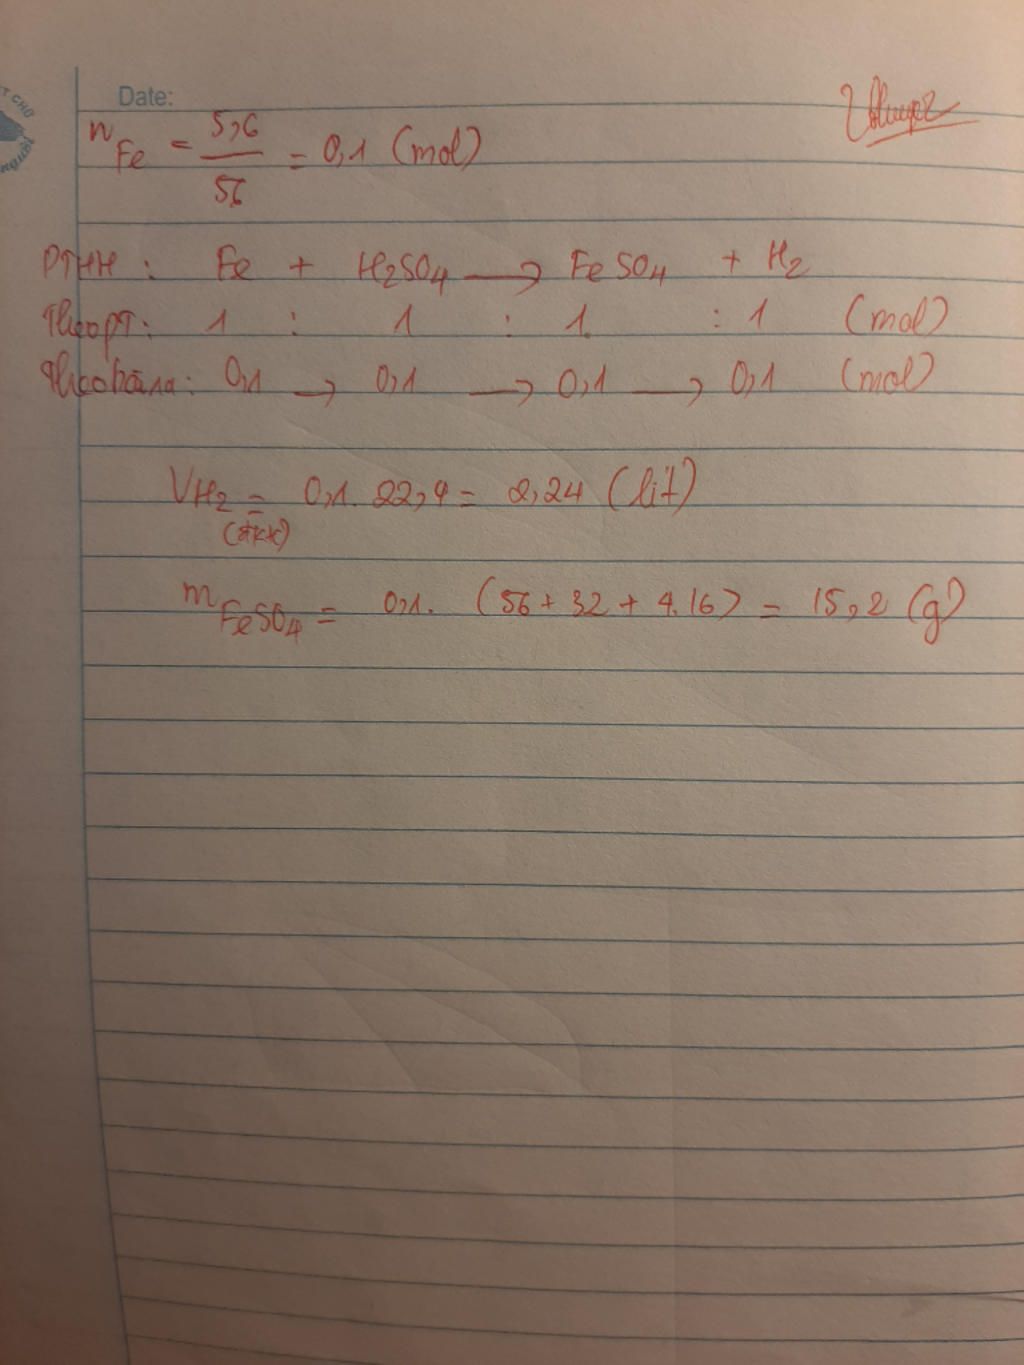 Date:
n Fe = 5,6 / 56 = 0,1 (mol)
PTHH : Fe + H2SO4 → FeSO4 + H2
Theo PT: 1 : 1 : 1 : 1 (mol)
0,1 → 0,1 → 0,1 → 0,1 (mol)
VH2 = 0,1. 22,4 = 2,24 (lít)
(đktc)
m FeSO4 = 0,1. (56 + 32 + 4.16) = 15,2 (g)